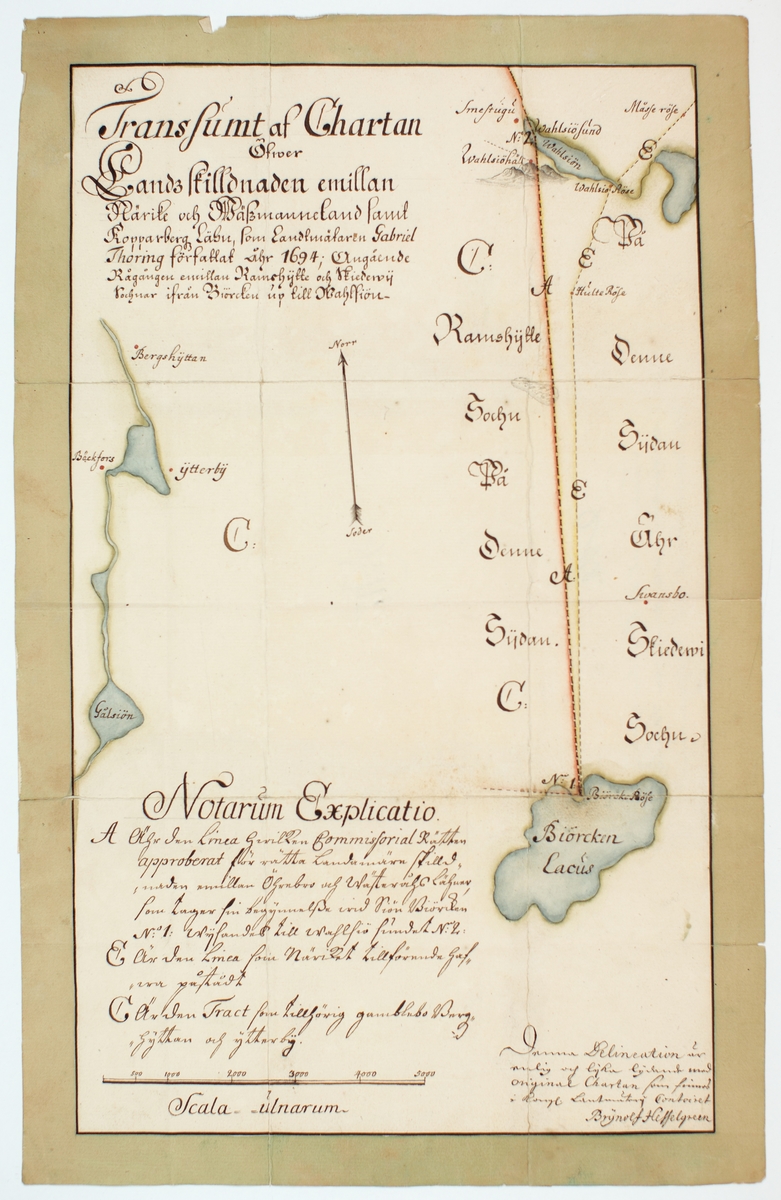 Transsumt af Chartan
Öfwer
Landzskilldnaden emillan
Närike och Wäßmanneland samt
Kopparberg Lähn, som Landtmätaren Gabriel
Thoring författat åhr 1694; Angående
Rågången emillan Ramshytte och Skiedewij
Sochnar ifrån Biörcken up till Wahlsiön
Smestugu
Mässe röse
No 2
Wahlsiösund
Wahlsiön
Wahlsiöhält
Wahlsiö Röse
E
C:
På
E
A
Hulte Röse
Ramshÿtte
Denne
Sochn
Sÿdan
På
E
Denne
Åhr
A
Swansbo.
Sÿdan.
Skiedewi
C:
Sochn
Norr
Söder
Bergshÿttan
Bäckfors
ÿtterbÿ
C:
Gälsiön
No 1
Biörk Röse
Biörcken
Lacus
Notarum Explicatio.
A Åhr den Linea hwilken Commissorial Rätten
approberat för rätta Landemäre skilld,
naden emillan Öhrebro och Wästeråhs Lähner,
som tager sin begÿnnelße wid Siön Biörcken
No 1: till Wahlsiö sundet No 2:
E Är den Linea som Närcket tillförende haf,
wa påstådt
C Är den Tract som tillhörig gamblebo Berg,
hÿttan och ÿtterbÿ.
500 1000 2000 3000 4000 5000
Scala ulnarum
Denna Delineation är
enlig och lÿka lÿdande med
original Chartan som finnes
i Kongl Lantmäterij Contoiret
Brÿnolf Hesselgreen